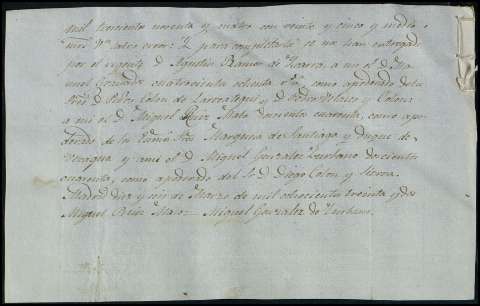 mil trescientos noventa y quatro con veinte y cinco y medio
mrs. vn. salvo error: Y para completarlo se nos han entregado
por el regente D. Agustin Ramon de Zarra a mi el d. Ma
nuel Gonzalez cuatrocientos ochenta como apoderado de los
Sres. D. Pedro Colon de Larreategui y D. Pedro Velasco y Colon
a mi el D. Miguel Ruiz Mato doscientos cuarenta, como apo
derado de los Excmos. Sres. Marquesa de Santiago y Duque de
Veragua y a mi el D. Miguel Gonzalez Zurbano doscientos
cuarenta, como apoderado del Sr. D. Diego Colon y Sierra.
Madrid diez y seis de Marzo de mil ochocientos treinta y dos
Miguel Ruiz Mato = Miguel Gonzalez de Zurbano.